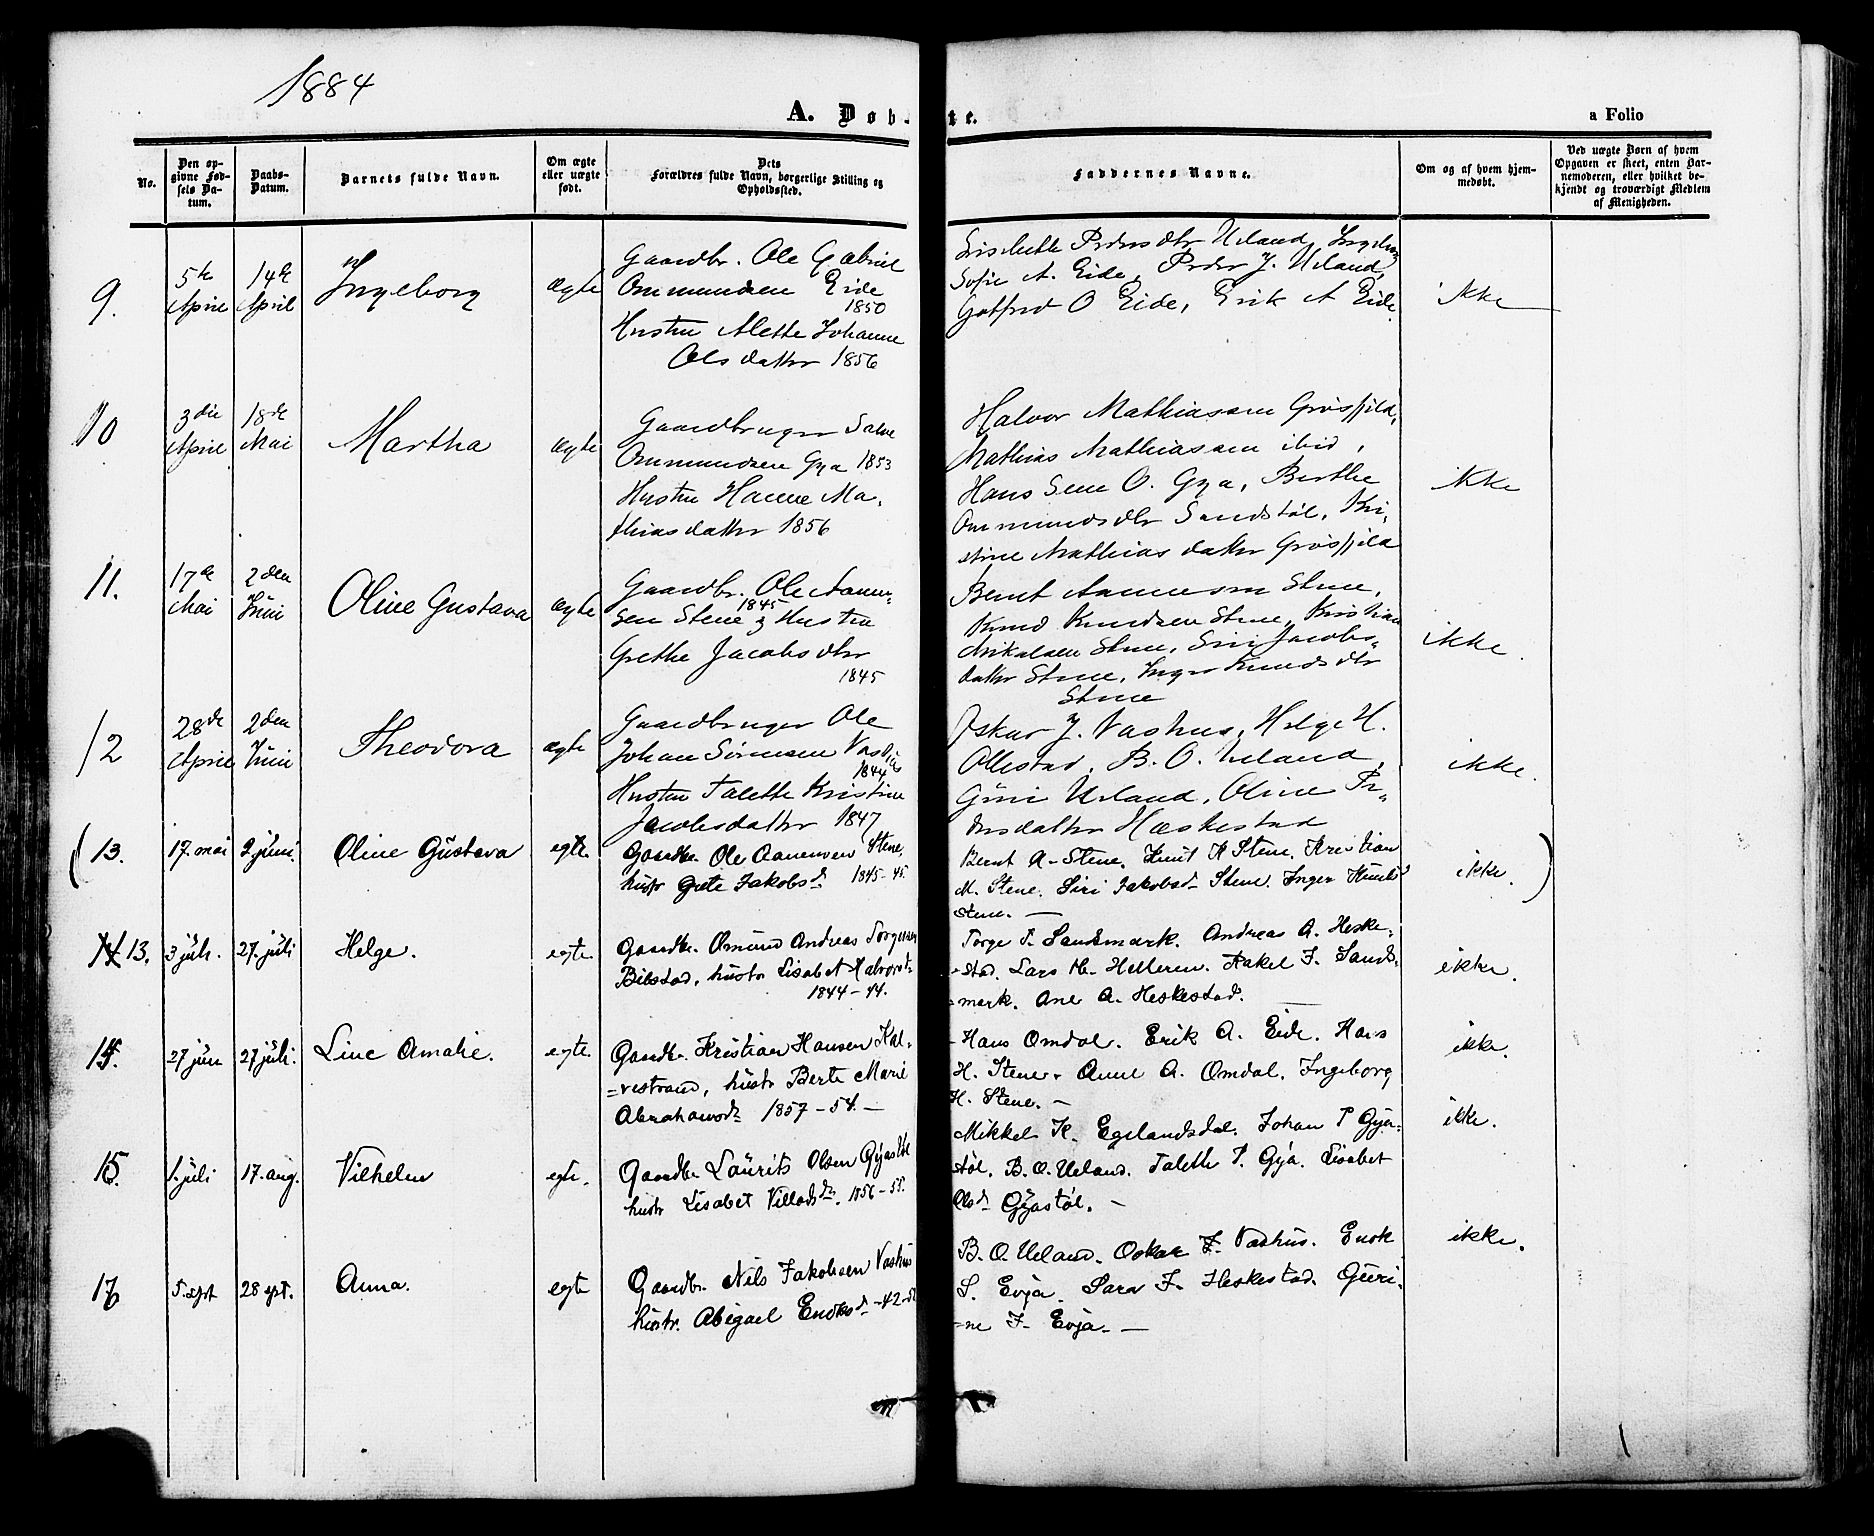 1884
A. Døb-
te.
a Folio
No.
Den op-
givne Fød-
sels Da-
tum.
Daabs-
Datum.
Barnets fulde Navn.
Om ægte
eller uægte
født.
Dets
Forældres fulde Navn, borgerlige Stilling og
Opholdssted.
Faddernes Navne.
Om og af hvem hjem-
medøbt.
Ved uægte Børn af hvem
Opgaven er skeet, enten Bar-
nemoderen, eller hvilket be-
kjendt og troværdigt Medlem
af Menigheden.
9.
5te
April
14de
April
Ingeborg
ægte
Gaardbr. Ole Gabriel
Ommundsen Eide
1850
Hustru Alette Johanne
Olsdatter 1856
Lisebette Pedersdtr Ueland, Ingeborg
Sofie A. Eide, Peder J. Ueland,
Gotfred O Eide, Erik A Eide.
ikke
10
3die
April
18de
Mai
Martha
ægte
Gaardbruger Salve
Ommundsen Gya 1853
Hustru Hanne Ma-
thiasdatter 1856
Halvor Mathiassen Grøsfjeld,
Mathias Mathiassen ibid,
Hans Sem O. Gya, Berthe
Ommundsdtr Sandstøl, Kri-
stine Mathiasdatter Grøsfjeld
ikke
11.
17de
Mai
2den
Juni
Oline Gustava
ægte
Gaardbr. Ole Aanen-
sen Stene 1845 & Hustru
Grethe Jacobsdtr
1845
Bernt Aanensen Stene,
Knud Knudsen Stene, Kristian
Mikalsen Stene, Siri Jacobs-
datter Stene, Inger Knudsdtr
Stene
ikke.
12
28de
April
2den
Juni
Theodora
ægte
Gaardbruger Ole
Johan Sörensen Vashus
1844
Hustru Talette Kristine
Jacobsdatter 1847
Oskar J. Vashus, Helge H.
Ollestad, B. O. Ueland,
Güri Ueland, Oline Pe-
dersdatter Hæskestad
ikke.
(13.
17. mai
2 juni
Oline Gustava
egte.
Gaardbr. Ole Aanensen Stene,
hustr Grete Jakobsd. 1845-45.
Bernt A- Stene. Knut K Stene. Kristian
M. Stene. Siri Jakobsd- Stene. Inger Knutsd
Stene. —
ikke.)
13.
3 juli.
27. juli
Helge.
egte.
Gaardbr. Omund Andreas Torgersen
Bilstad, hustr Lisabet Halvorsd-
1844-44.
Torger T. Sandsmark. Andreas A. Heske-
stad. Lars M- Helleren. Rakel J. Sands-
mark. Ane A. Heskestad.
ikke.
14.
27 jun
27 juli.
Line Amalie.
egte.
Gaardbr. Kristian Hansen Kal-
vestrand, hustr Berte Marie
Abrahamsd- 1857-54.—
Hans Omdal. Erik A. Eide. Hans
H. Stene. Anne A. Omdal. Ingeborg
H. Stene. —
ikke.
15.
1. juli
17. aug.
Vilhelm
egte.
Gaardbr. Laurits Olsen Gyastøl
hustr Lisabet Villadsd-. 1856-55.
Mikkel K. Egelandsdal. Johan P Gyas-
tøl. B. O. Ueland. Talette T. Gya. Lisabet
Olsd- Gyastøl. —
ikke.
16
5. sept
28 sept.
Anna.
egte
Gaardbr. Nils Jakobsen Vashus
hustr. Abigael Enoksd-42-52
B. O. Ueland. Oskar J. Vashus. Enok
S. Evja. Sara J. Heskestad. Guri-
ne J. Evja. —
ikke.